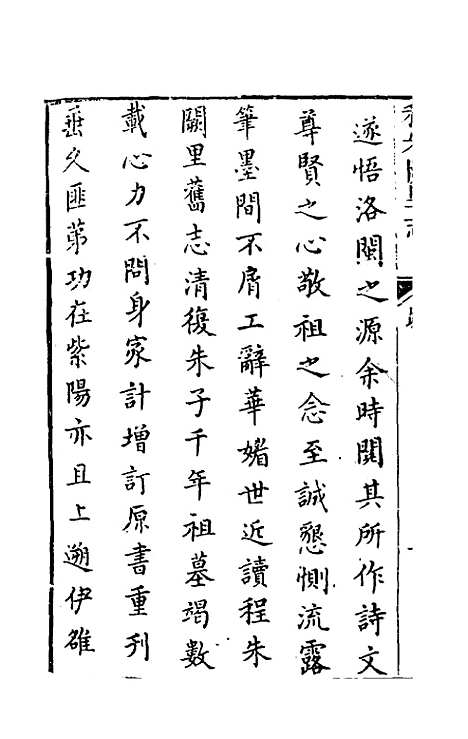 遂悟洛閩之源余時閱其所作詩文
尊賢之心敬祖之念至誠懇惻流露
筆墨間不屑工辭華媚世近讀程朱
闕里舊志清復朱子千年祖墓竭數
載心力不問身家計增訂原書重刋
垂久匪苐功在紫陽亦且上遡伊雒